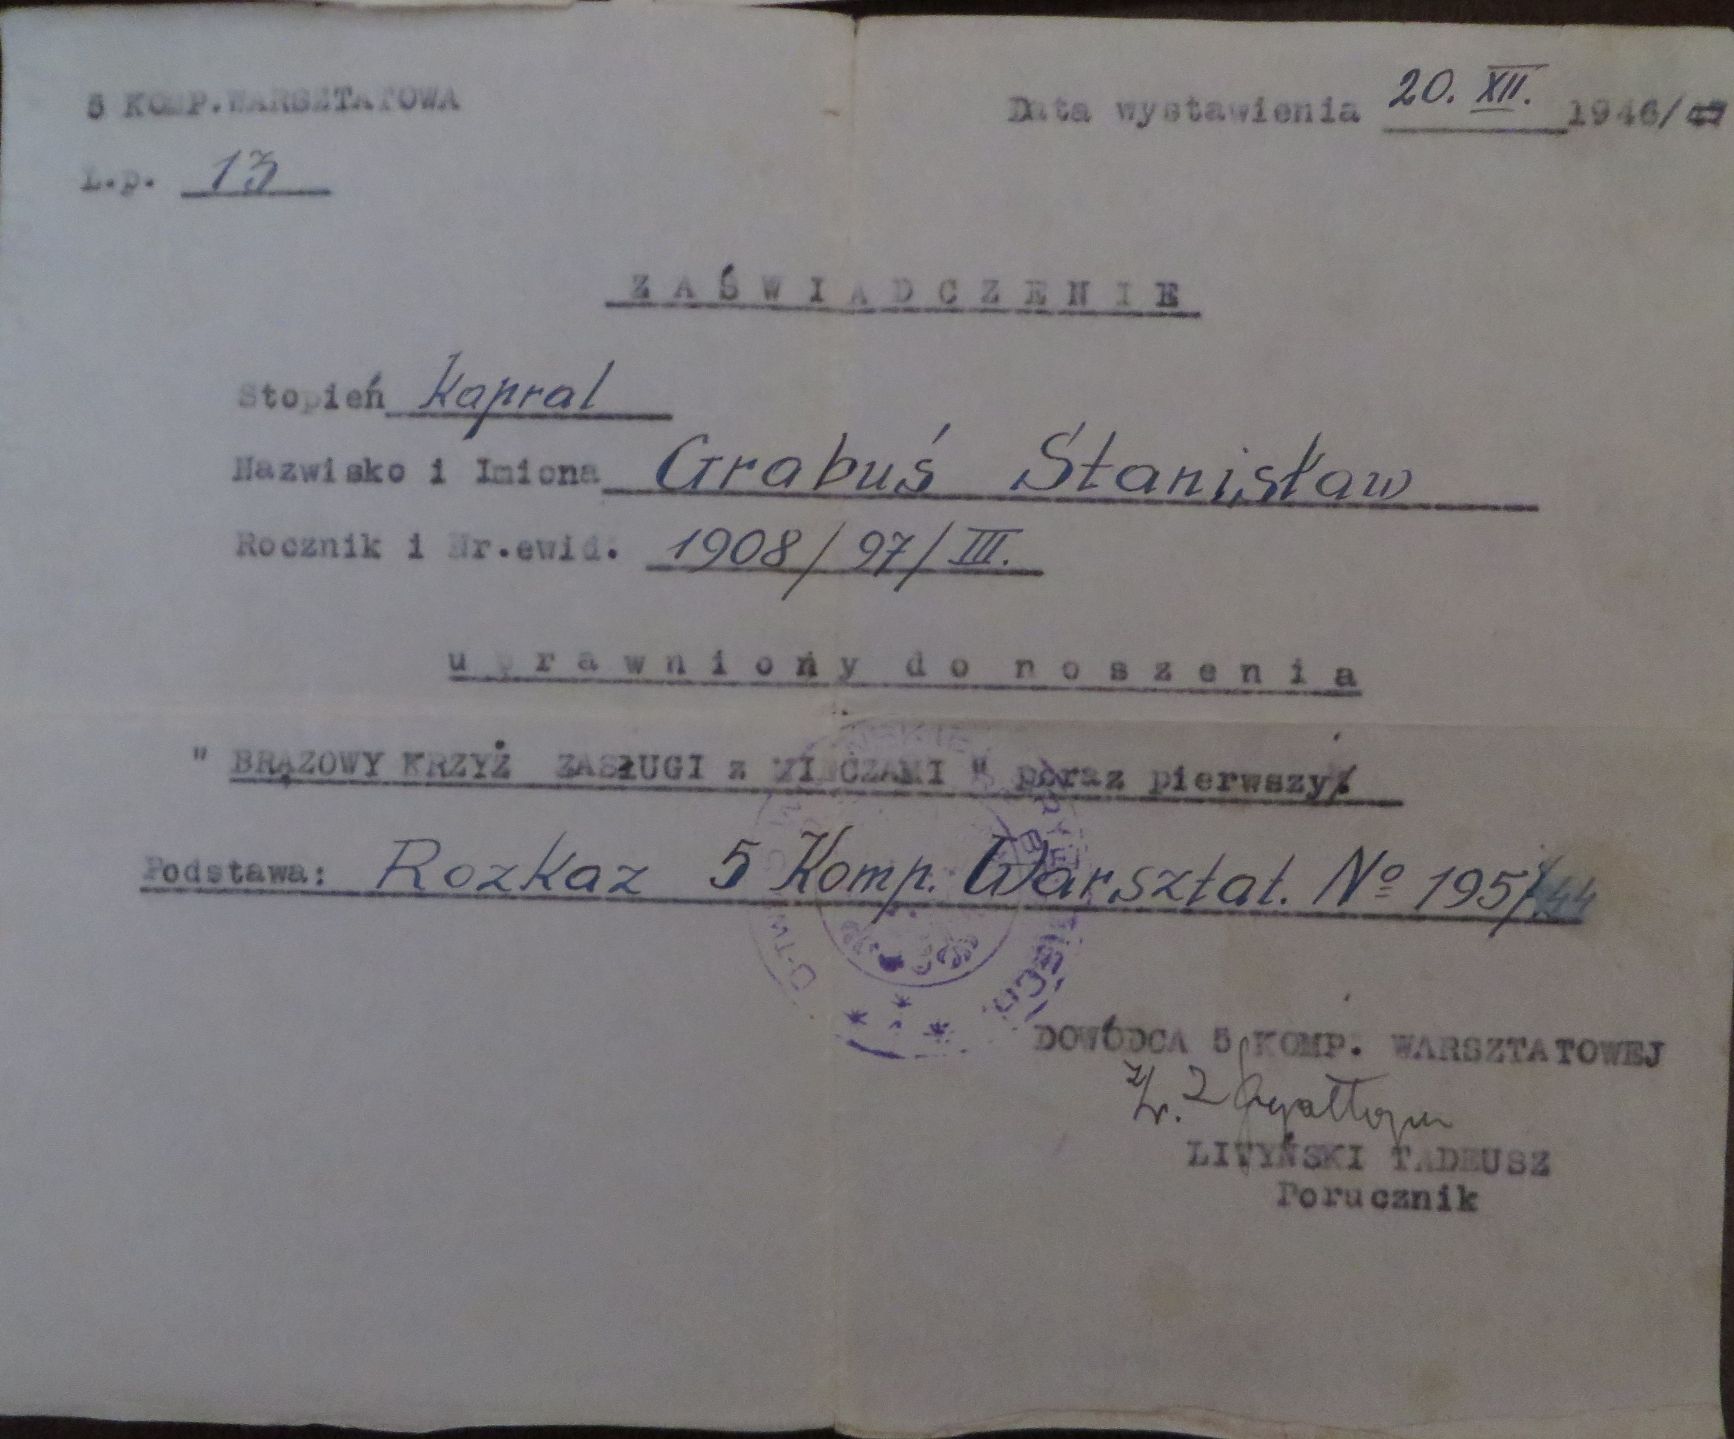 5 KOMP.WARSZTATOWA
Data wystawienia 20. XII. 1946/47
L.p. 13
ZAŚWIADCZENIE
Stopień Kapral
Nazwisko i Imiona Grabuś Stanisław
Rocznik i Nr.ewid. 1908/97/III.
uprawniony do noszenia
" BRĄZOWY KRZYŻ ZASŁUGI z MIECZAMI " poraz pierwszy
Podstawa: Rozkaz 5 Komp. Warsztat. Nº 195/44
DOWÓDCA 5 KOMP. WARSZTATOWEJ
LITYŃSKI TADEUSZ
Porucznik